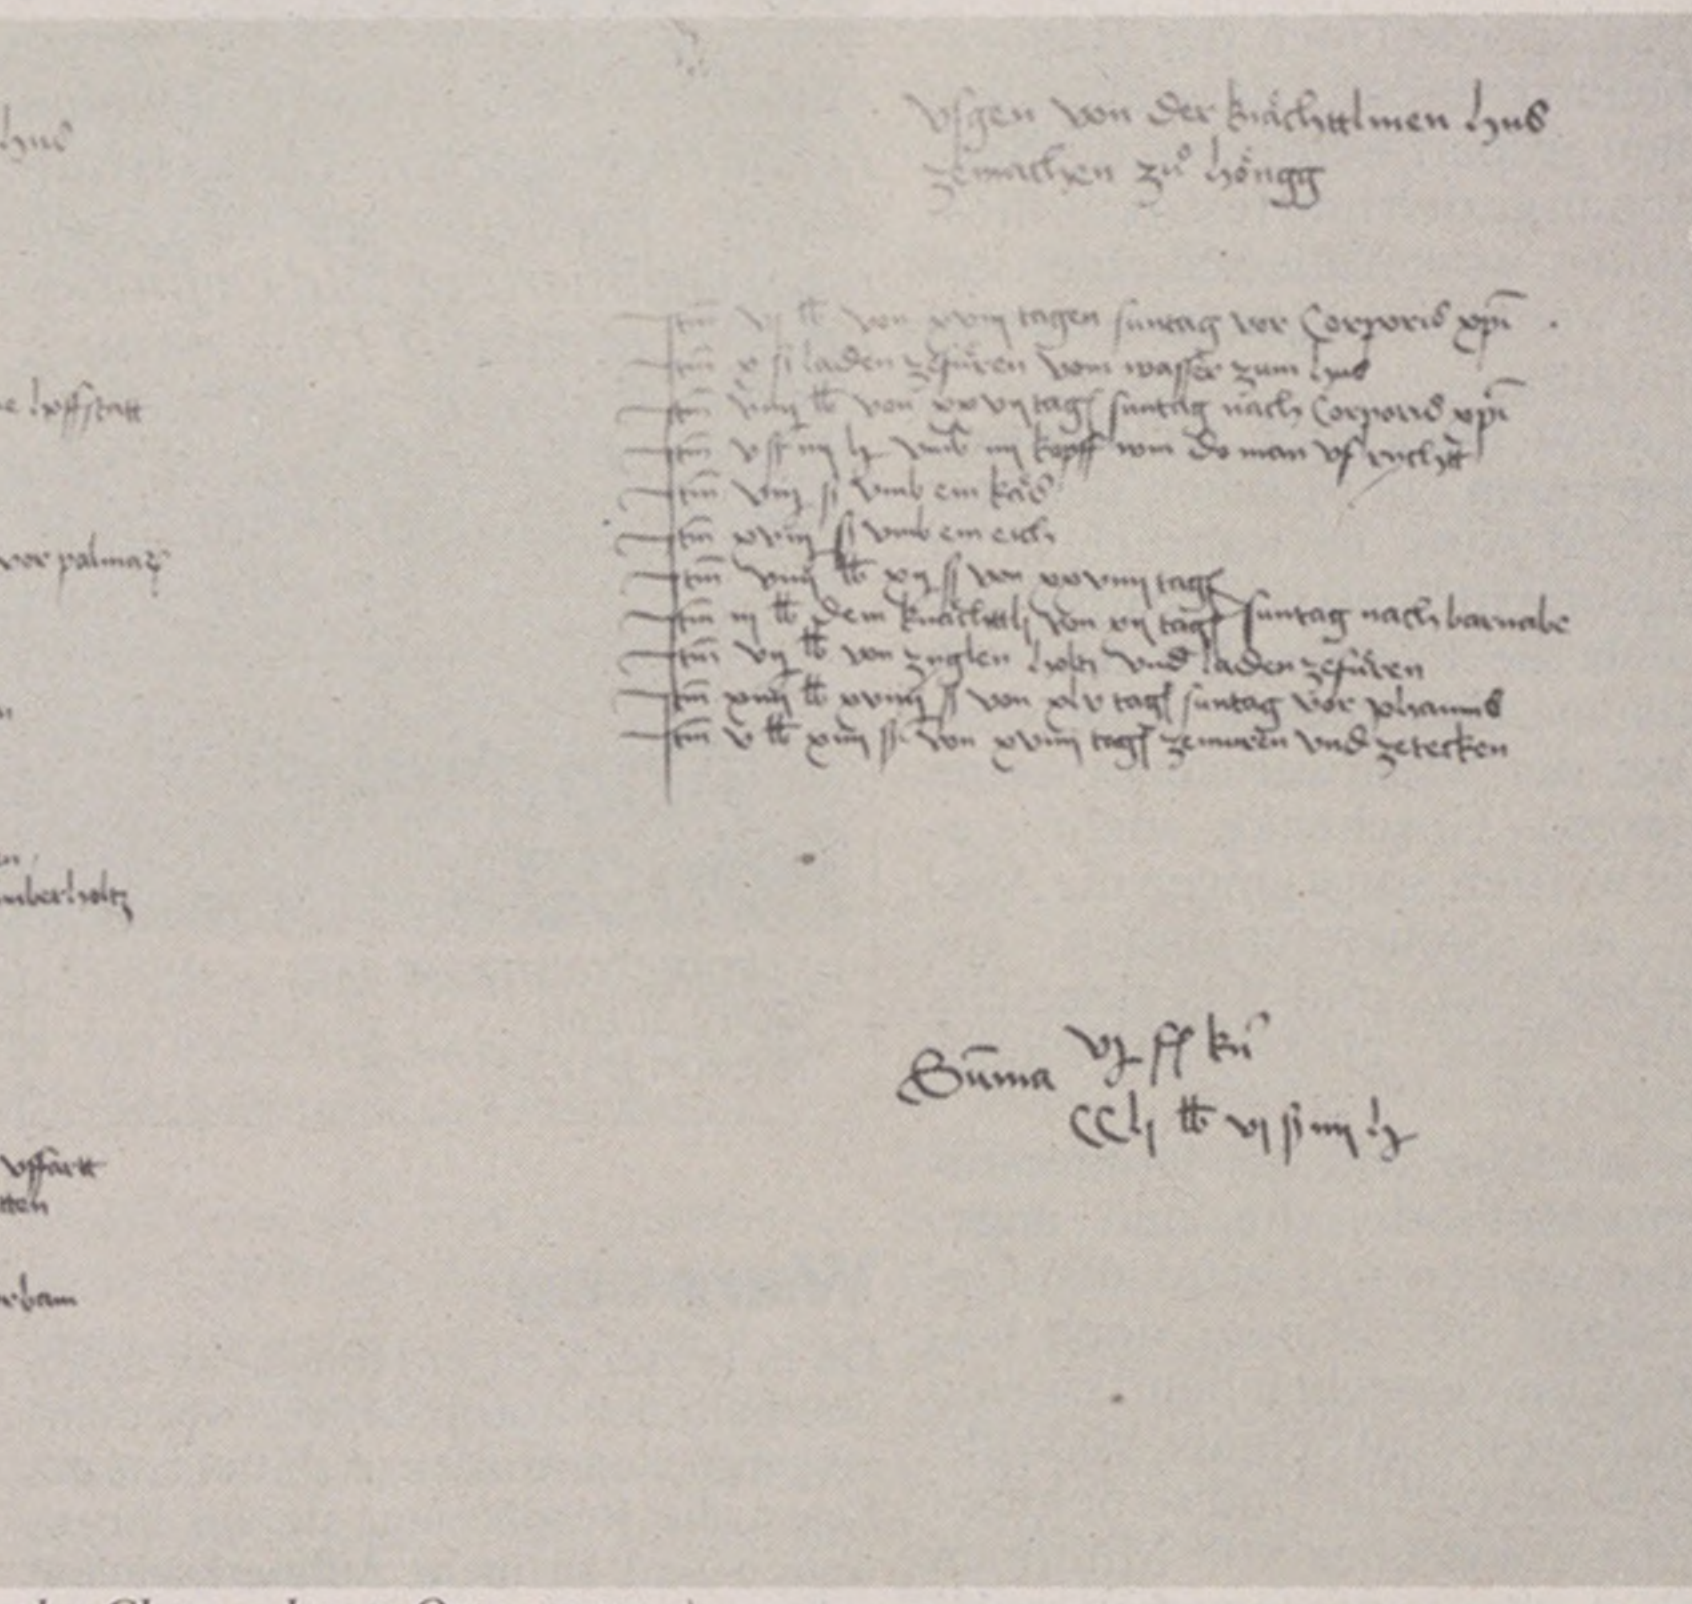 hus
hoffstatt
vor palmar
berholtz
vffartt
tten
rbam
vsgen von der knächttlinen hus
ze machen zuͦ höngg
Itm vj lb von xviij tagen suntag vor Corporis xpi
Itm x ß laden ze füren vom wasser zum hus
Itm viiij lb von xxvij tag suntag nach Corporis xpi
Itm v ß iiij h vmb iiij kopff win do man vf rychtt
Itm viij ß vmb ein käs
Itm xviij ß vmb ein eich
Itm viiij lb xij ß von xxviiij tag
Itm iij lb dem knächttli von xij tag suntag nach barnabe
Itm vij lb von zuglen holtz vnd laden ze füren
Itm xiiij lb xviiij ß von xlv tag suntag vor Johannis
Itm v lb xiiij ß von xviiij tag ze muren vnd ze tecken
Suma vj
CClj lb vj ß iiij h